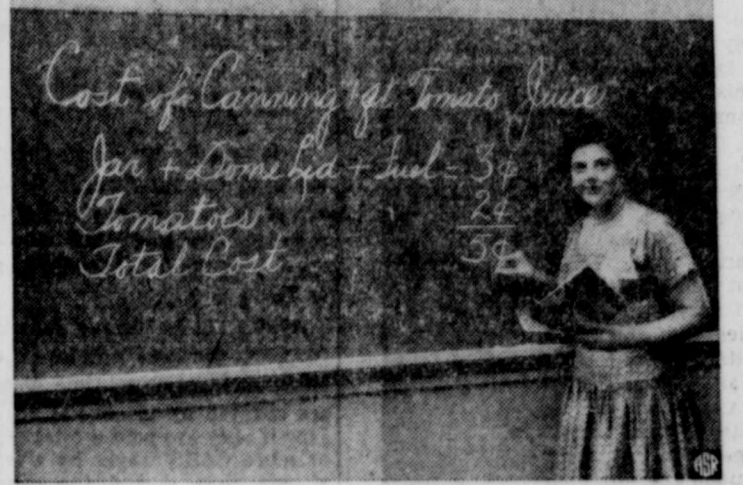 Cost of Canning 1 qt Tomato Juice
Jar + Dome Lid + Fuel = 3¢
Tomatoes 2¢
Total Cost 5¢